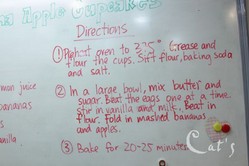 Apple Cupcakes
Directions
① Preheat oven to 325° Grease and
flour the cups. Sift flour, baking soda
and salt.
② In a large bowl, mix butter and
sugar. Beat the eggs one at a time.
stir in vanilla and milk. Beat in
flour. Fold in mashed bananas
and apples.
③ Bake for 20-25 minutes
mon juice
ananas
nilla
Cat's